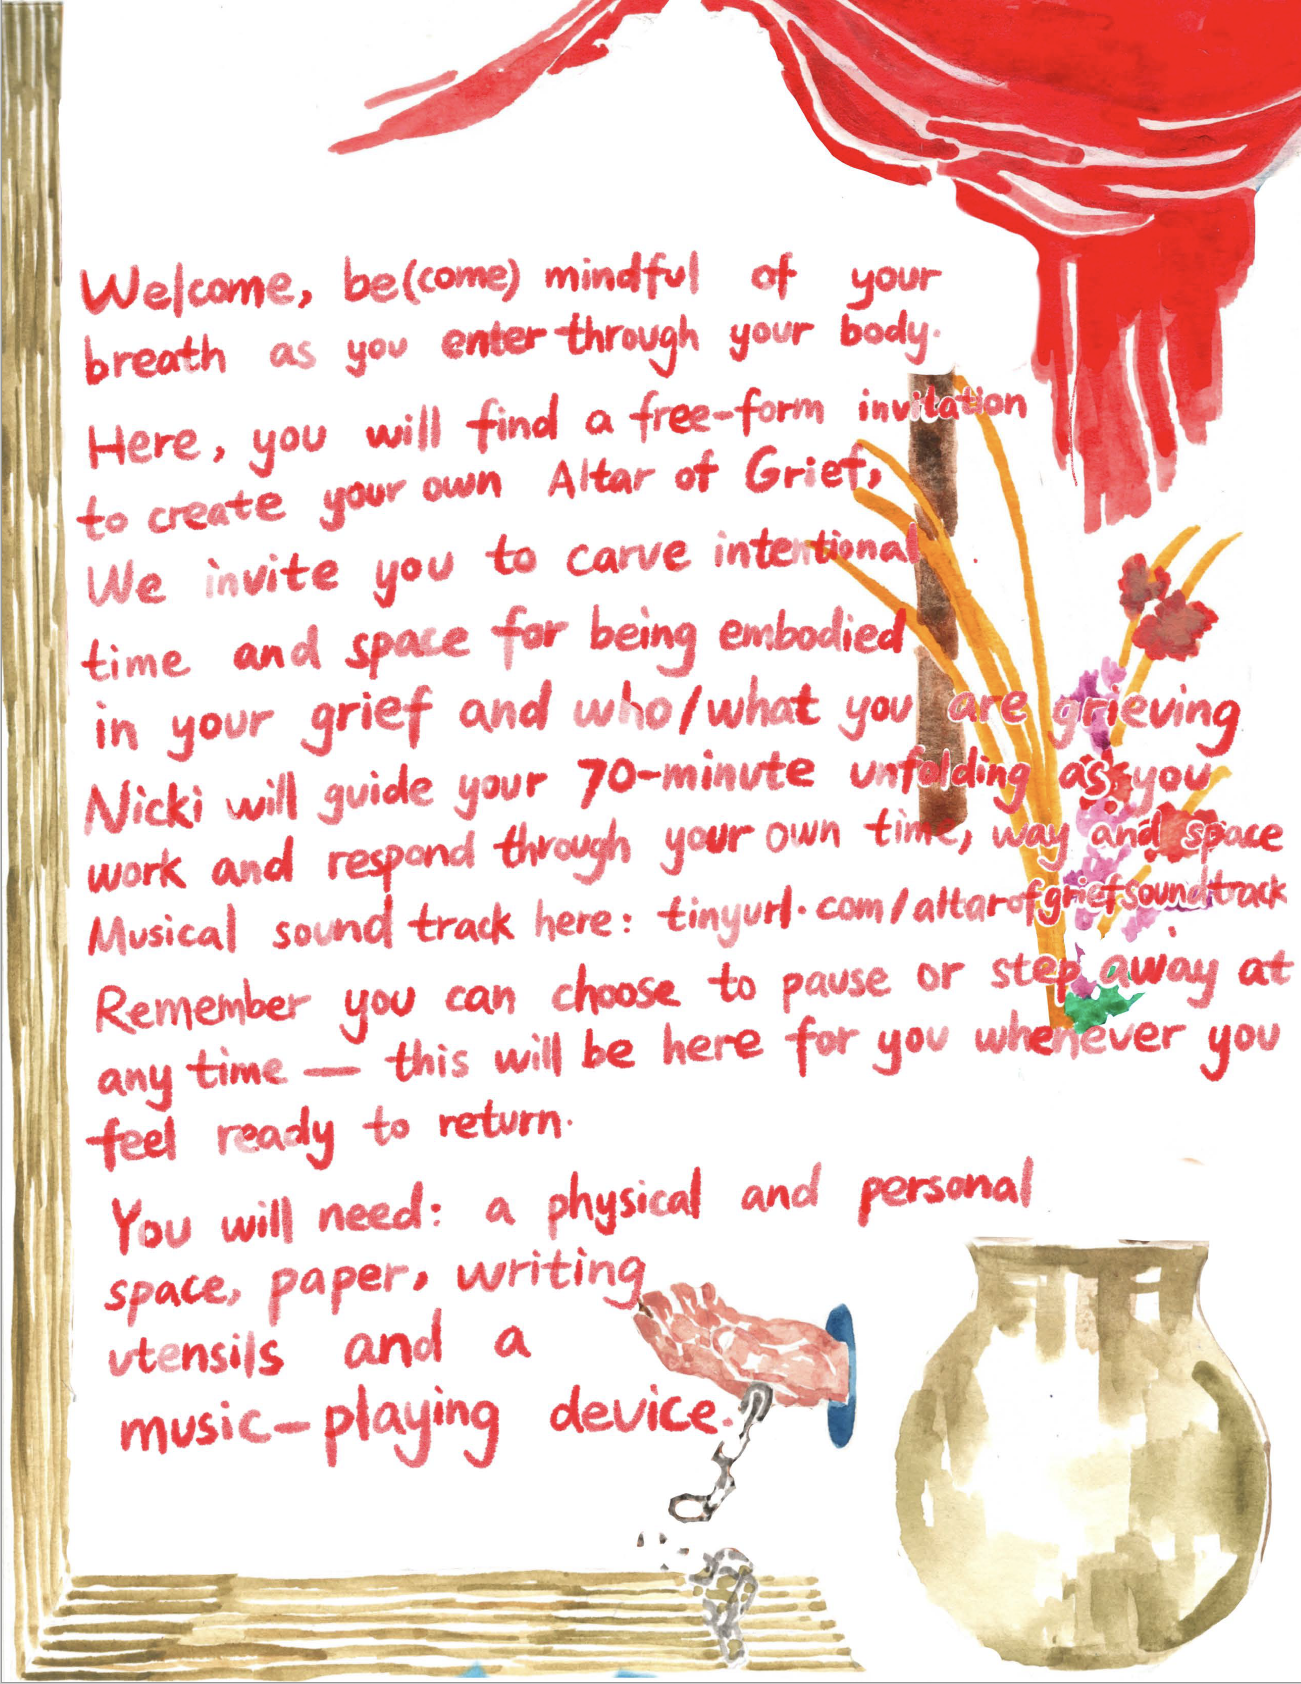 Welcome, be(come) mindful of your
breath as you enter through your body.
Here, you will find a free-form invitation
to create your own Altar of Grief,
We invite you to carve intentional
time and space for being embodied
in your grief and who/what you are grieving
Nicki will guide your 70-minute unfolding as you
work and respond through your own time, way and space
Musical sound track here: tinyurl.com/altarofgriefsoundtrack
Remember you can choose to pause or step away at
any time — this will be here for you whenever you
feel ready to return.
You will need: a physical and personal
space, paper, writing
utensils and a
music-playing device.